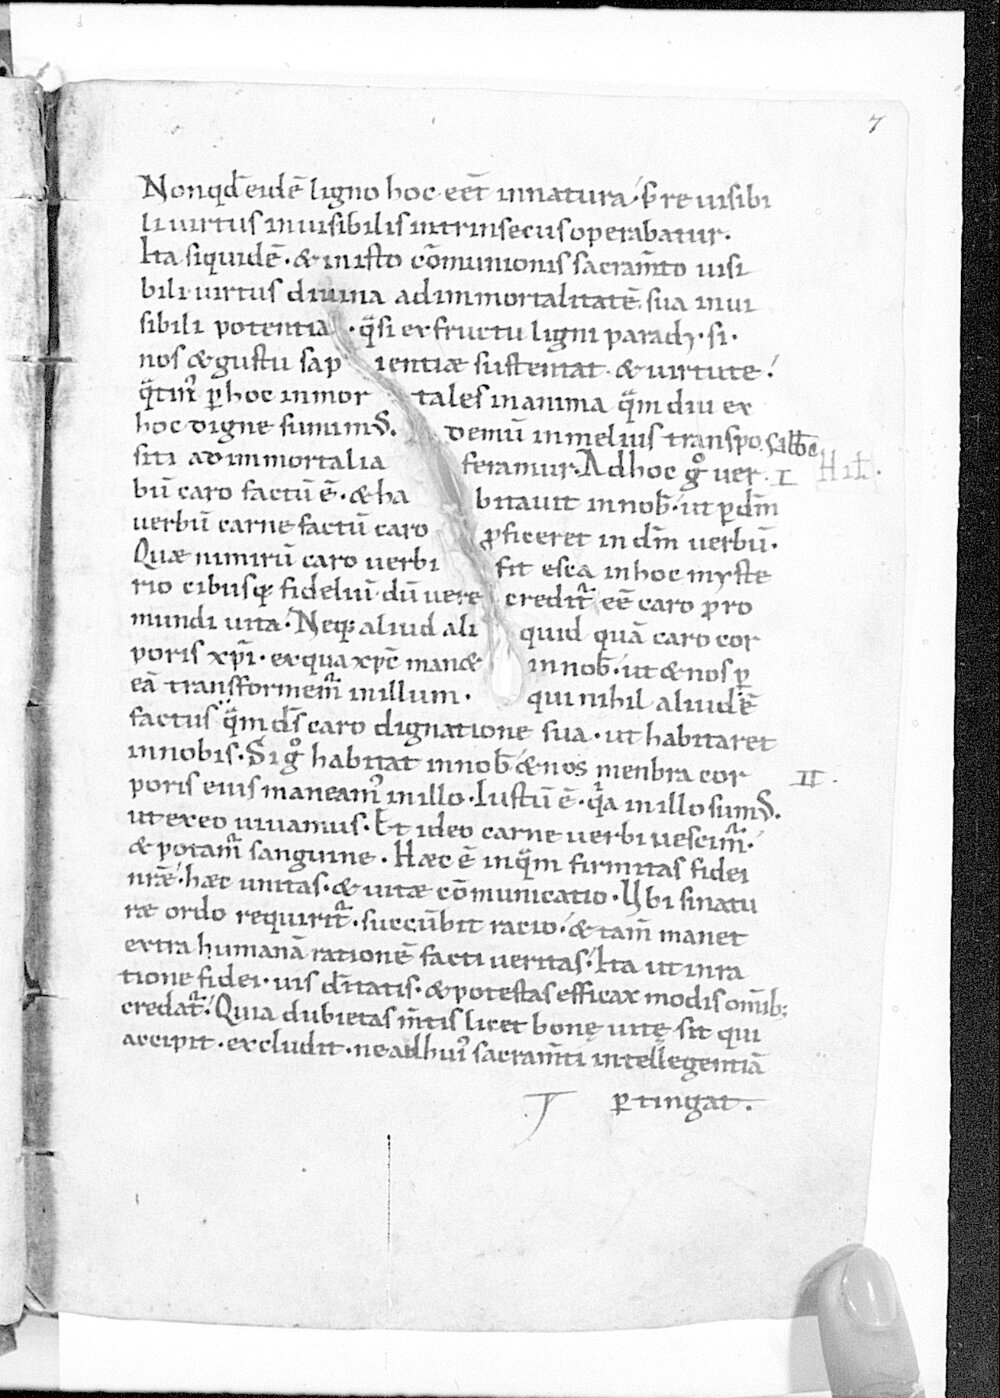 7
Nonqd̄ eidē ligno hoc eēt innatura. s; re uisibi
li uirtus inuisibilis intrinsecus operabatur.
Ita siquidē. & inisto cōmunionis sacram̄to uisi
bili uirtus diuina adimmortalitatē sua inui
sibili potentia. q̄si exfructu ligni paradi. si.
nos & gustu sapientiæ sustentat & uirtute.
q̄tin' p̱hoc inmortales inanima q̄mdiu ex
hoc digne sumim'. demū inmelius transpo
siti adimmortalia feramur. Adhoc g° uer
bū caro factū ē. & habitauit innob̄. ut p̱ dm̄
uerbū carne factū caro p̱ficeret in dm̄ uerbū.
Quæ nimirū caro uerbi fit esca inhoc myste
rio cibusq; fideliū dū uere credit̄ eē caro pro
mundi uita. Neq; aliud aliquid quā caro cor
poris xp̄i. exqua xp̄c man& innob̄. ut & nos p̱
eā transformem̄ inillum. qui nihil aliud ē
factus q̄m ds̄ caro dignatione sua. ut habitaret
innobis. Si g° habitat innob̄ & nos menbra cor
poris eius maneam' inillo. Iustū ē. q̄a inillo sum'.
ut exeo uiuamus. Et ideo carne uerbi uescim̄.
& potam̄ sanguine. Hæc ē inq̄m firmitas fidei
nr̄e. hæc unitas. & uitæ cōmunicatio. Ybi sinatu
ræ ordo requirit̄. succūbit racio. & tam̄ manet
extra humanā rationē facti ueritas. Ita ut inra
tione fidei. uis dītatis. & potestas efficax modis om̄ib;
credat̄. Quia dubietas m̄tis licet bonę uitę sit qui
accipit. excludit. ne adhui' sacram̄ti intellegentiā
p̱tingat.
I
II.